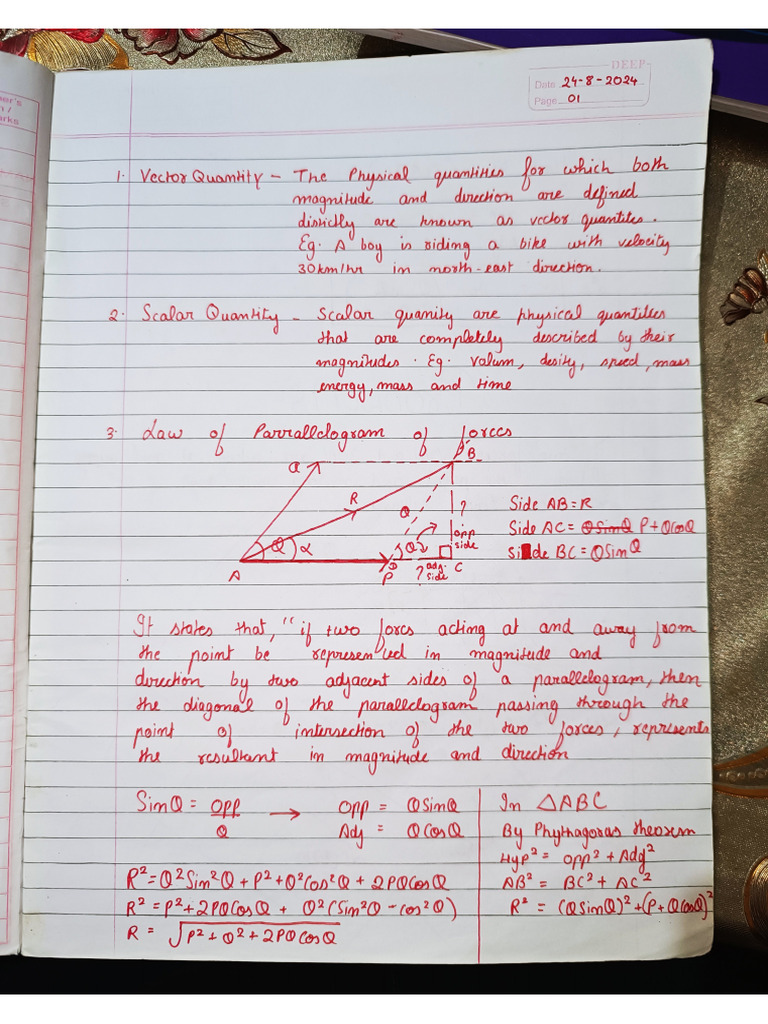 DEEP
Date 24-8-2024
Page 01
1. Vector Quantity - The Physical quantities for which both
magnitude and direction are defined
distictly are known as vector quantites.
Eg. A boy is riding a bike with velocity
30km/hr in north-east direction.
2. Scalar Quantity - Scalar quanity are physical quantities
that are completely described by their
magnitudes. Eg. valum, desity, speed, mass
energy, mass and time
3. Law of Parrallelogram of forces
Q B
R Q ?
opp side
Side AB=R
Side AC= QSinQ P+QCosQ
Side BC=QSinQ
Q α Q
A P ? adj. side C
It states that, "if two forcs acting at and away from
the point be represented in magnitude and
direction by two adjacent sides of a parallelogram, then
the diagonal of the parallelogram passing through the
point of intersection of the two forces, represents
the resultant in magnitude and direction
SinQ = opp/Q → opp = QSinQ
Adj = QCosQ
R²=Q²Sin²Q + P²+Q²Cos²Q + 2PQCosQ
R²=P²+2PQCosQ + Q²(Sin²Q - cos²Q)
R = √P²+Q²+2PQCosQ
In △ABC
By Phythagoras theorem
Hyp² = opp²+Adg²
AB² = BC²+AC²
R² = (QSinQ)²+(P+QCosQ)²